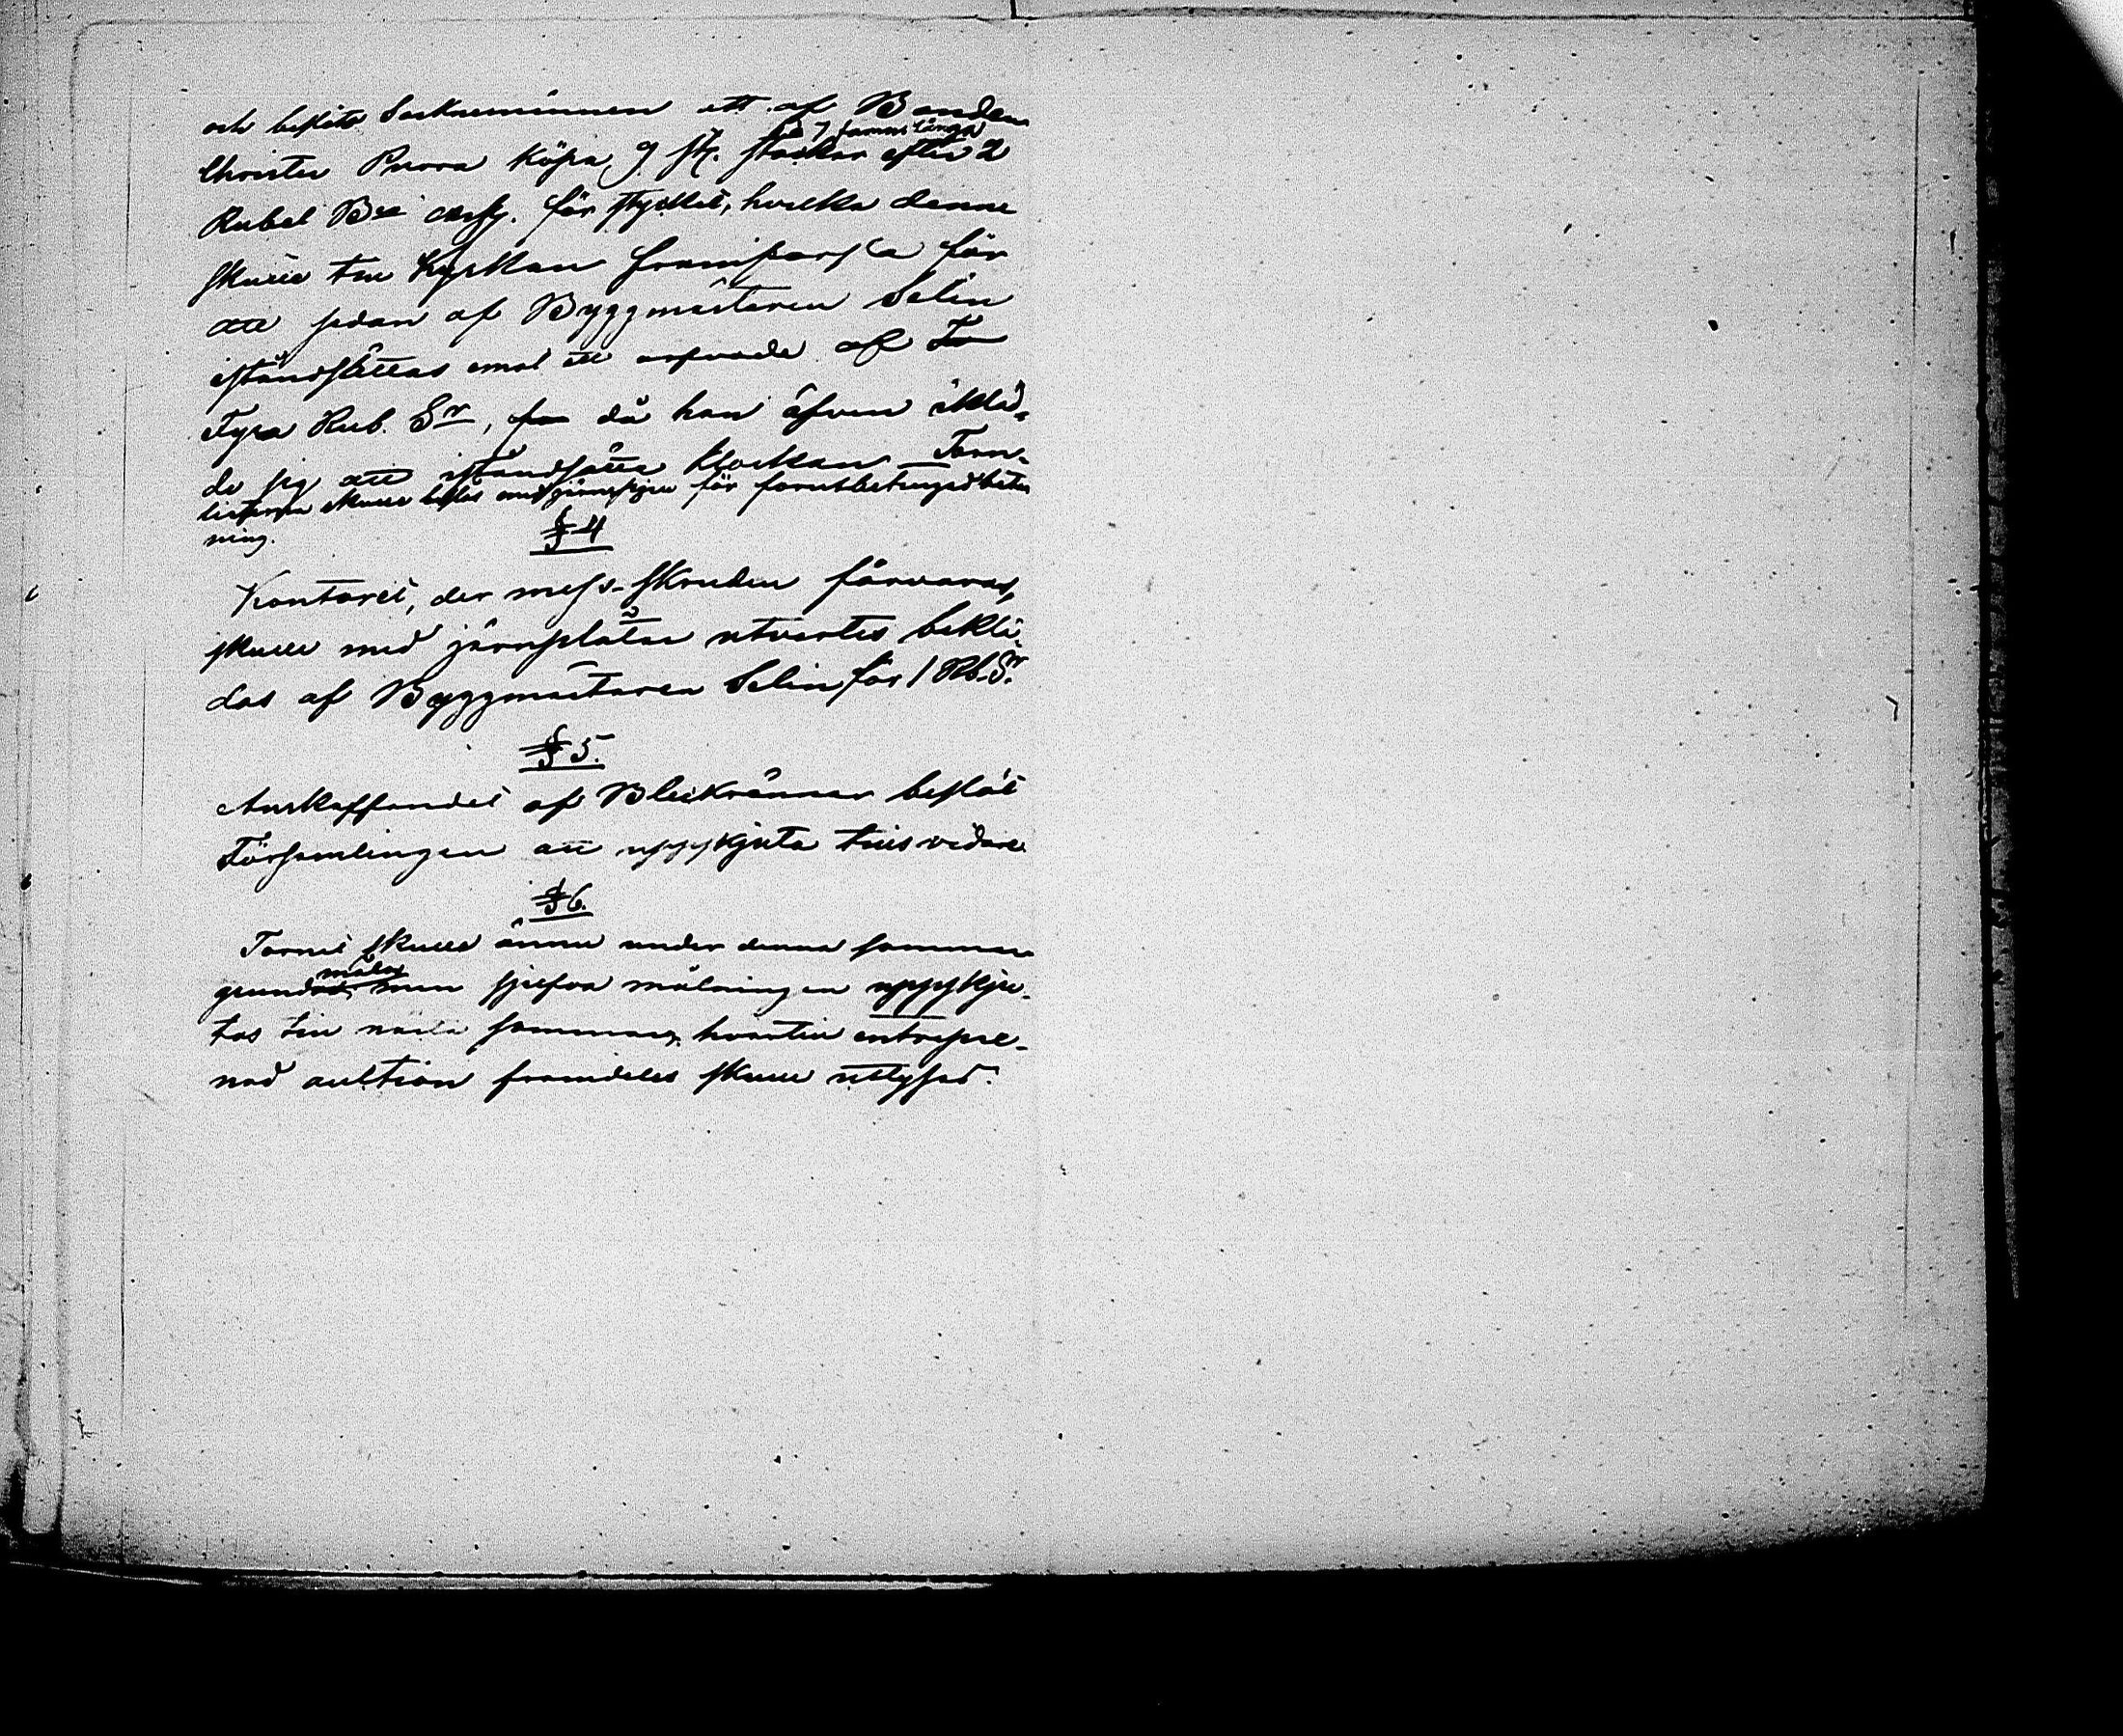 och beslöto Socknemännen att af Bonden
Christer Purra köpa 9 st. 7 famns långa stockar efter 2
Rubel Bco Assg. för stycket, hvilka denne
skulle till Kyrkan framforsla för
att sedan af Byggmästaren Selin
iståndsättas emot ett arfvode af
Fyra Rub. Sr, då han äfven iklä-
de sig att iståndsätta klockan Torn-
skulle beslås med för forutbetingad betal
ning.
§ 4
Kontoret, der mess-skruden förvaras,
skulle med järnplåtar utvertes beklä-
das af Byggmästaren Selin för 1 Rb. Sr.
§ 5.
Anskaffandet af Bleckrännor beslöt
Församlingen att uppskjuta tills vidare.
§ 6.
Tornet skulle ännu under denna sommar
grundmålas, men sjelfva målningen uppskju-
tas till nästa sommar, hvartill entrepre-
nad auktion framdeles skulle utlysas.